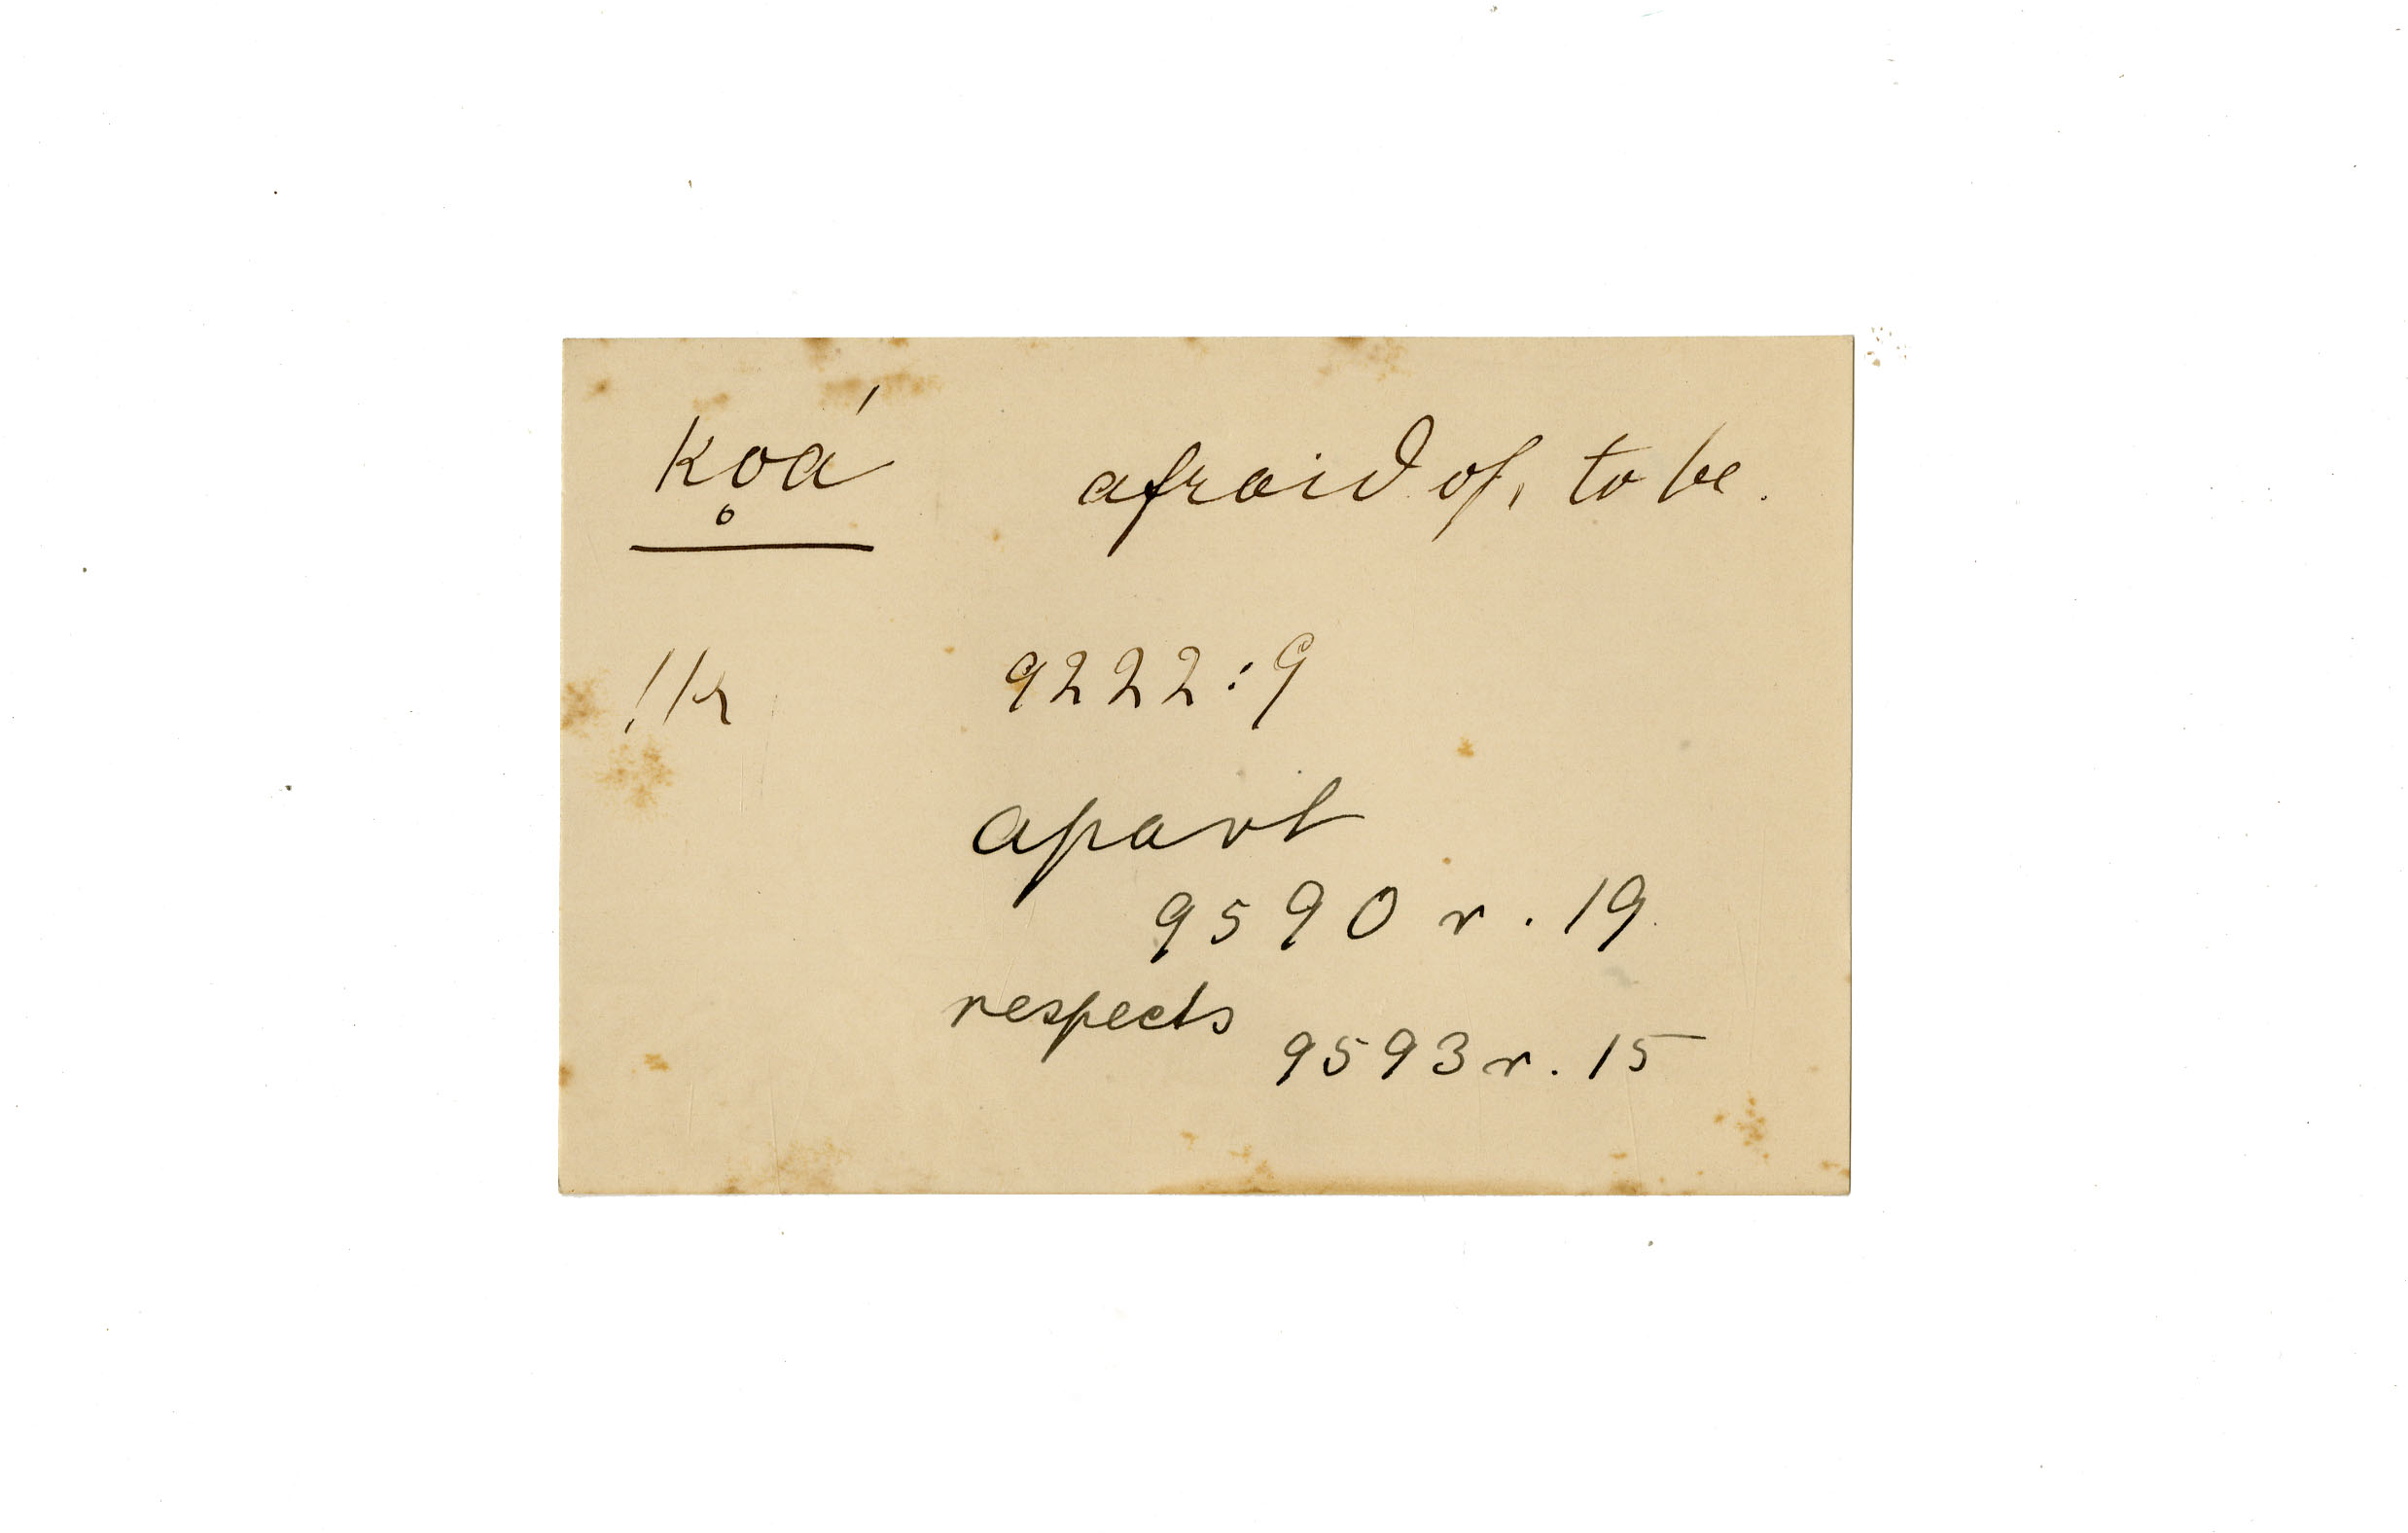 ko̥á afraid of, to be.
!k 9222:9
apart
9590 r. 19.
respects 9593 r. 15